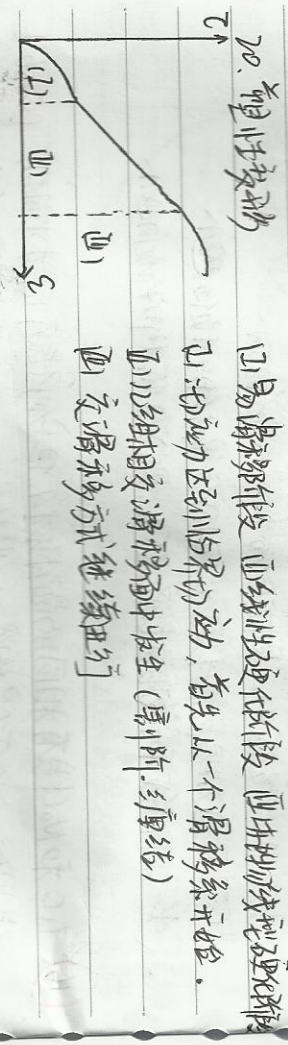 20、塑性变形
τ
γ
[I]
[II]
[III]
[I]易滑移阶段 [II]线性硬化阶段 [III]抛物线型硬化阶段
[I]：切应力达到临界切应力，首先从一个滑移系开始．
[II]：几组相交滑移面中发生（割阶．缠结）
[III] 交滑移方式继续进行